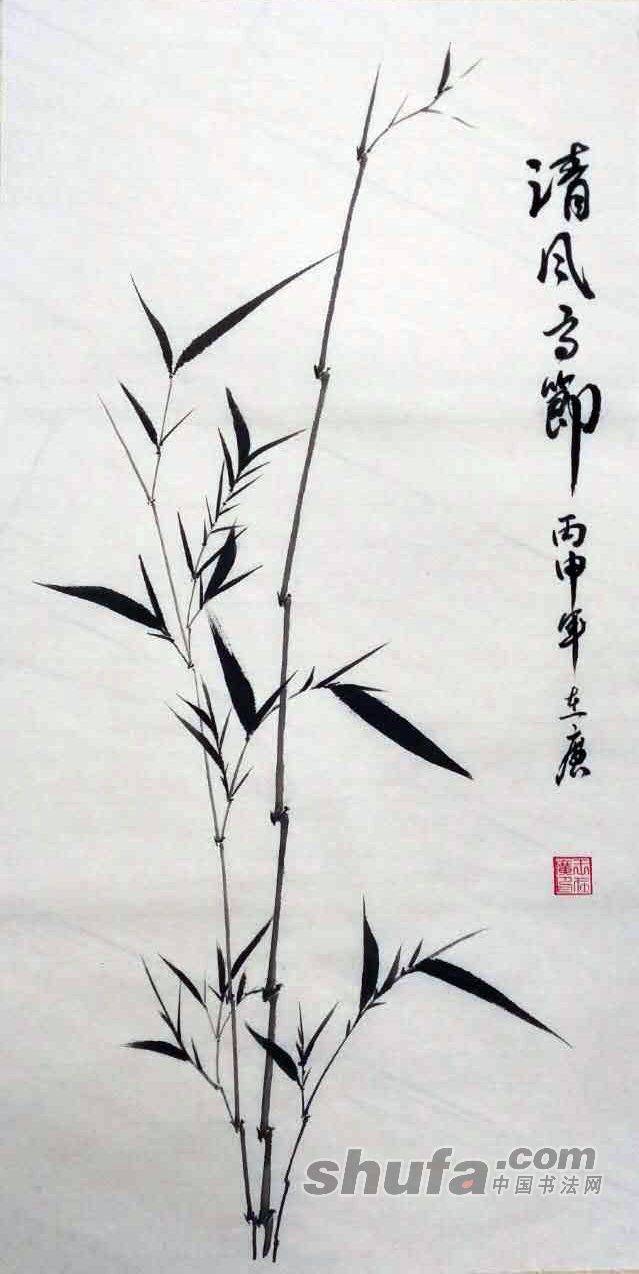 清风高節
丙申年 在廣
shufa.com
中国书法网